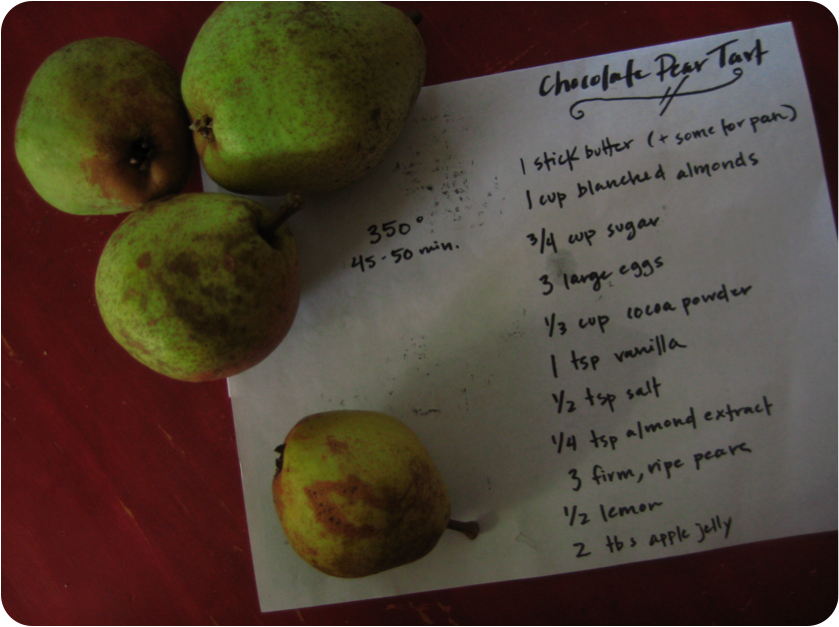 Chocolate Pear Tart
1 stick butter (+ some for pan)
1 cup blanched almonds
3/4 cup sugar
3 large eggs
1/3 cup cocoa powder
1 tsp vanilla
1/2 tsp salt
1/4 tsp almond extract
3 firm, ripe pears
1/2 lemon
2 tbs apple jelly
350°
45-50 min.